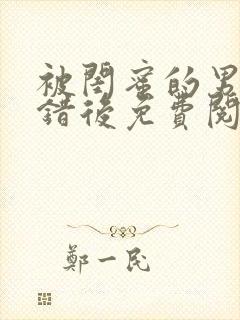 被閨蜜的男
錯後免費閱
鄭一民